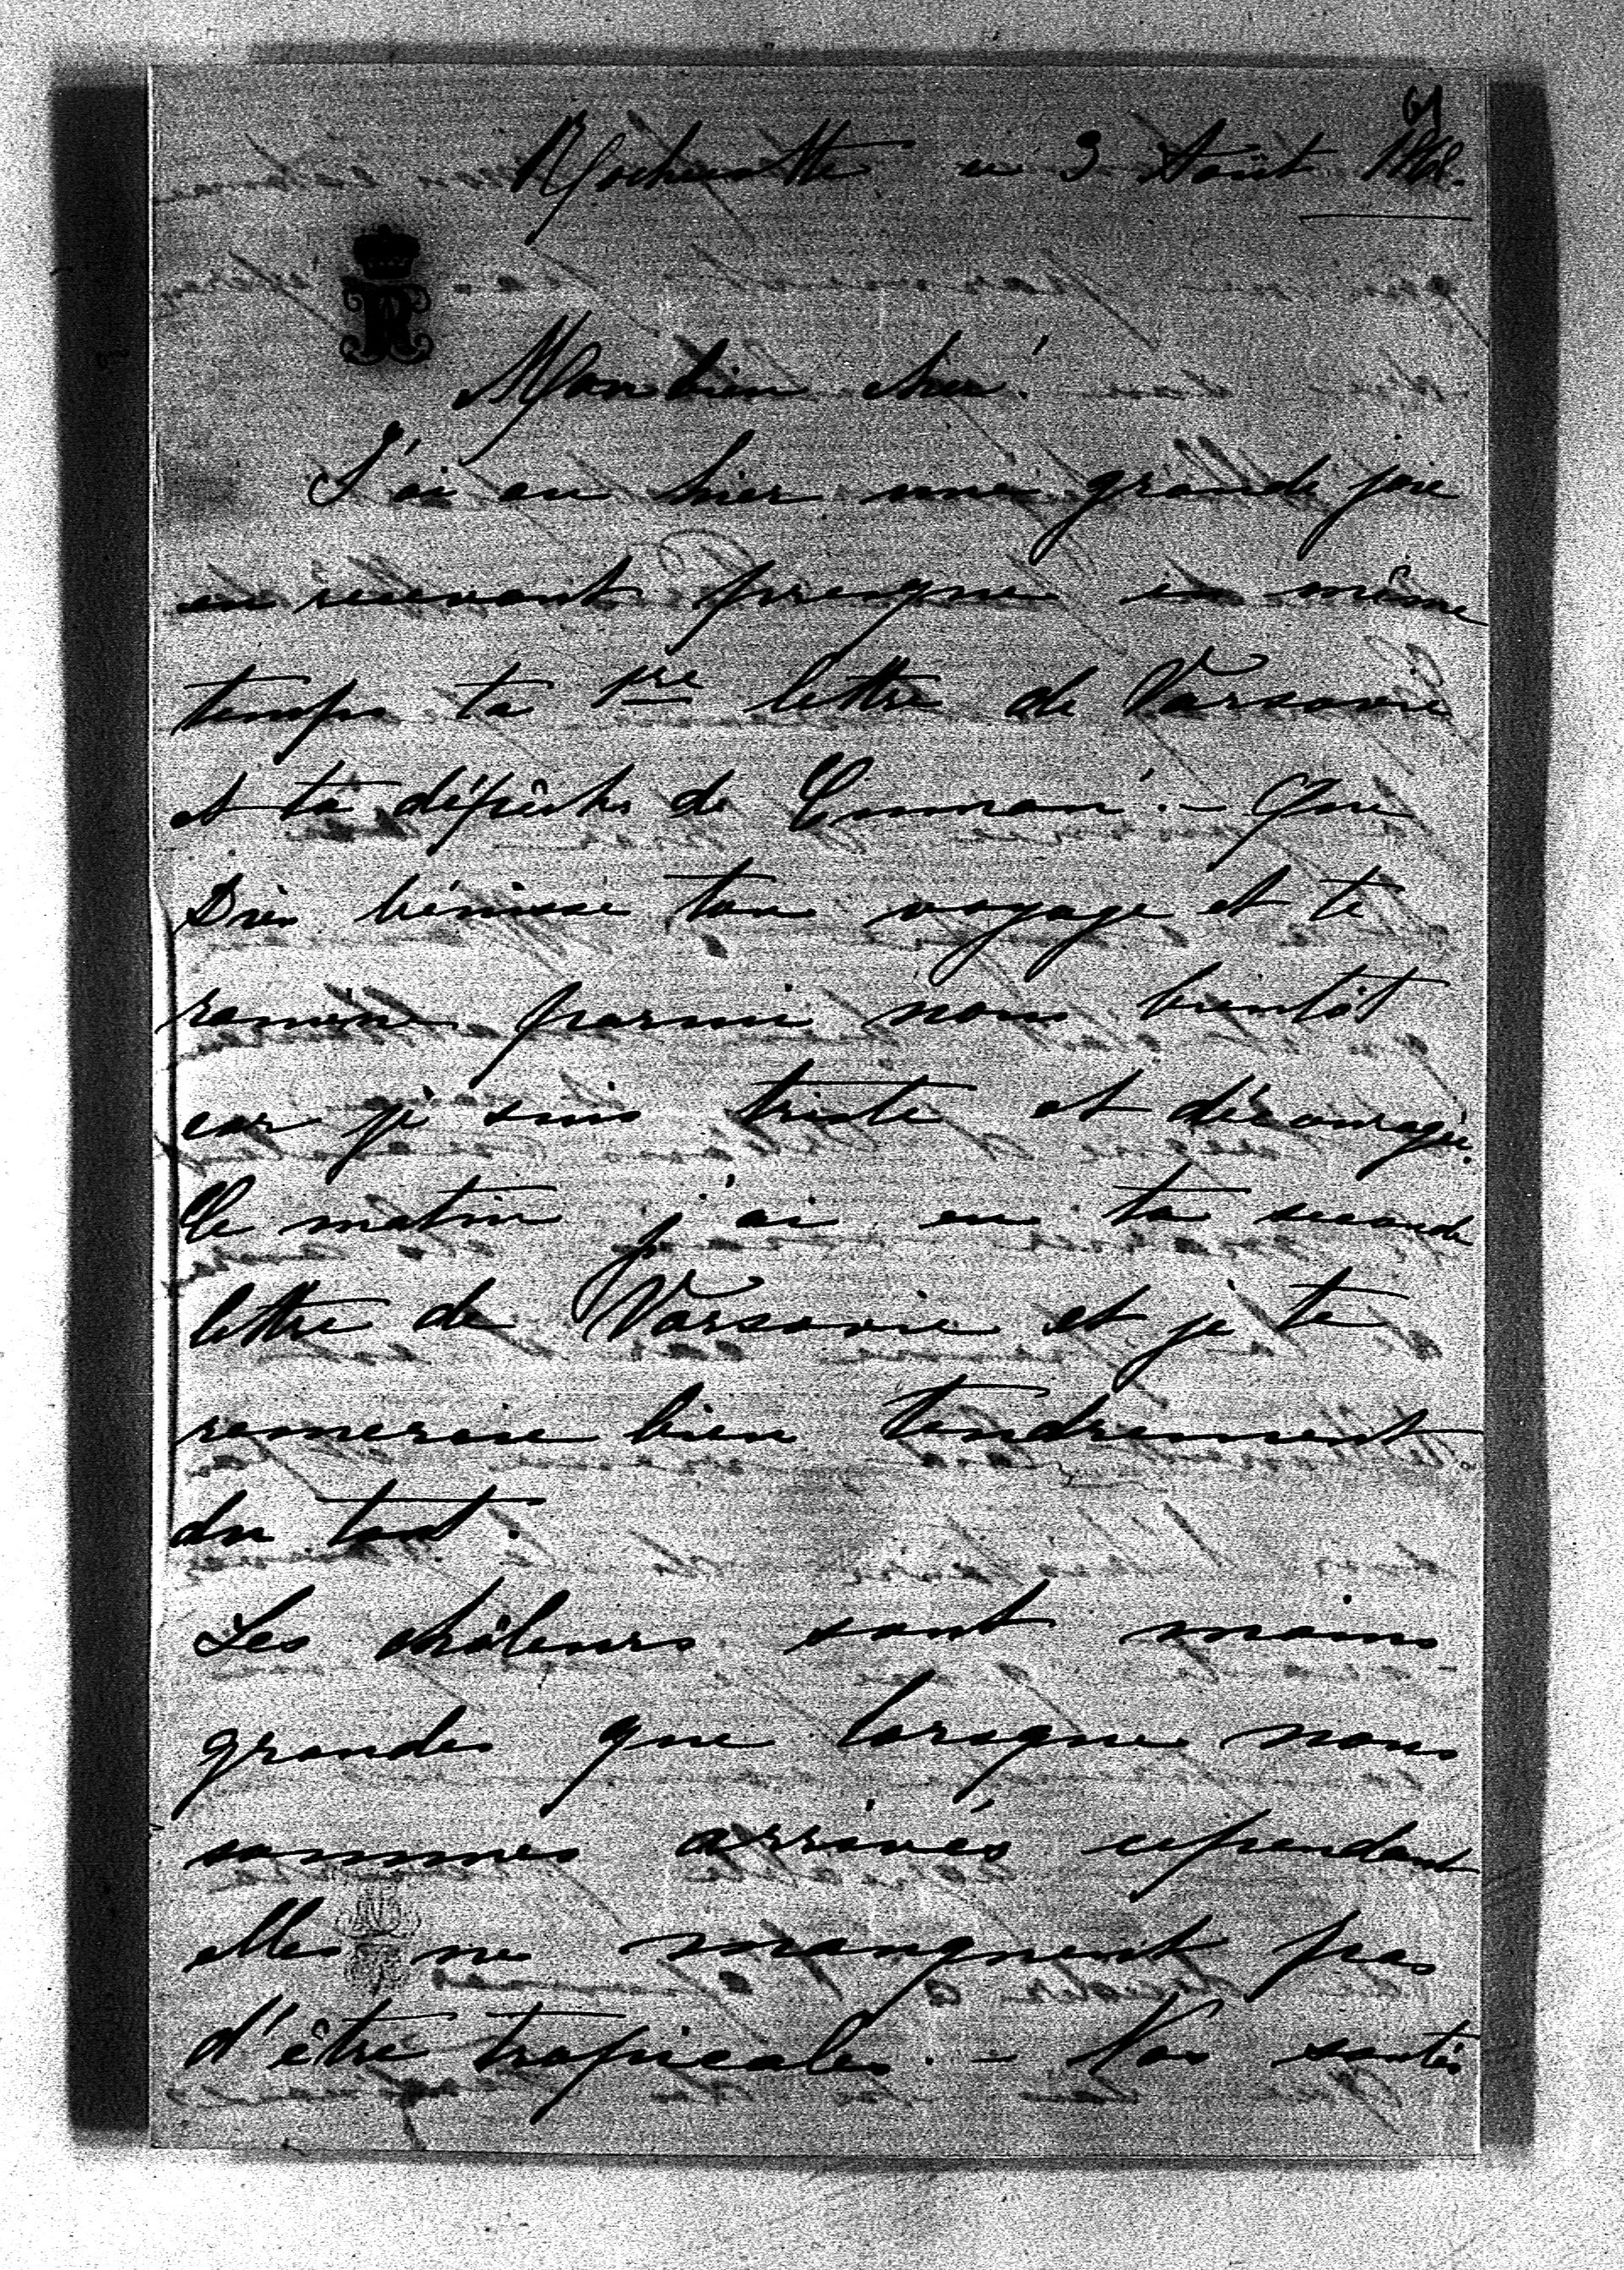 Rochecotte ce 3 Août 1868.
Mon bien cher!
J'ai eu hier une grande joie
en recevant presque en même
temps ta 1re lettre de Varsovie
et ta dépêche de. – Que
Dieu bénisse ton voyage et te
ramène parmi nous bientôt
car je suis triste et découragée.
Ce matin j'ai eu ta seconde
lettre de Varsovie et je te
remercie bien tendrement
du tout.
Les châleurs sont moins
grandes que lorsque nous
sommes arrivés cependant
elles ne manquent pas
d'être tropicales. – Nos santés